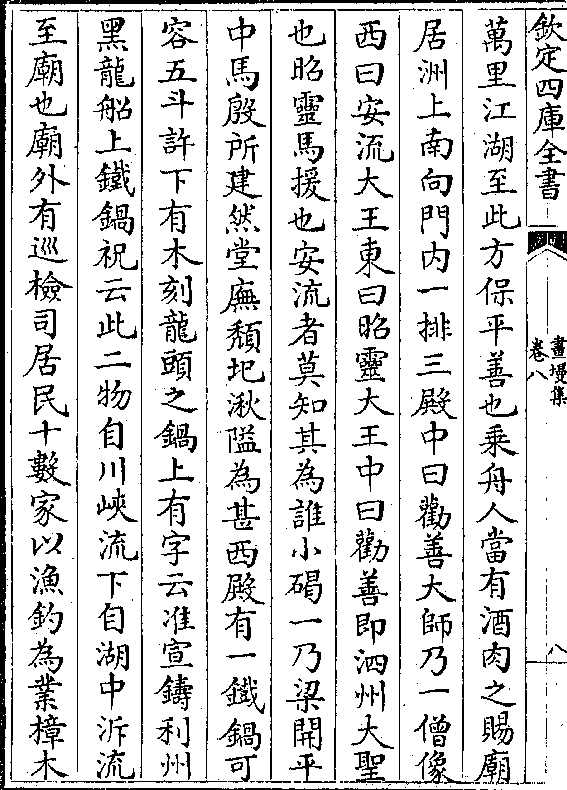 欽定四庫全書
畫墁集
卷八
八
萬里江湖至此方保平善也乗舟人當有酒肉之賜廟
居洲上南向門内一排三殿中曰勸善大師乃一僧像
西曰安流大王東曰昭靈大王中曰勸善即泗州大聖
也昭靈馬援也安流者莫知其為誰小碣一乃梁開平
中馬殷所建然堂廡頽圯湫隘為甚西殿有一鐵鍋可
容五斗許下有木刻龍頭之鍋上有字云准宣鑄利州
黑龍船上鐵鍋祝云此二物自川峽流下自湖中泝流
至廟也廟外有巡檢司居民十數家以漁釣為業樟木